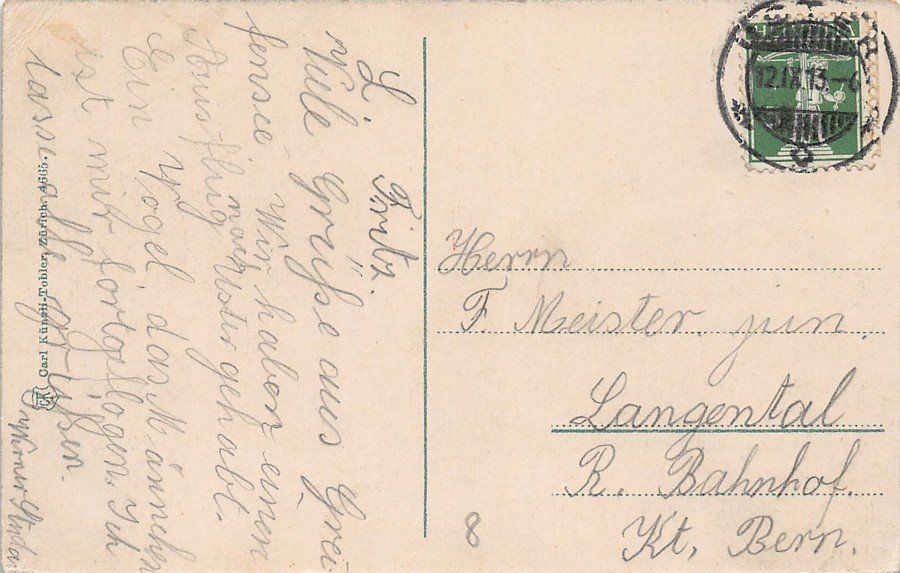 L. Fritz.
Viele Grüße aus Grei
fensee. Wir haben einen
Ausflug nach
gehabt.
Ein Vogel, das Männchen
ist mir fortgeflogen. Ich
lasse alle grüßen.
Werner
Carl Künzli-Tobler, Zürich. 4665.
12.IX.13.-6
Herrn
F. Meister. jun.
Langental
R. Bahnhof.
Kt. Bern.
8